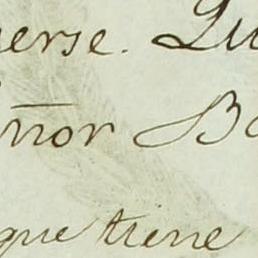 erse. Lu
ñor Ba
que tiene